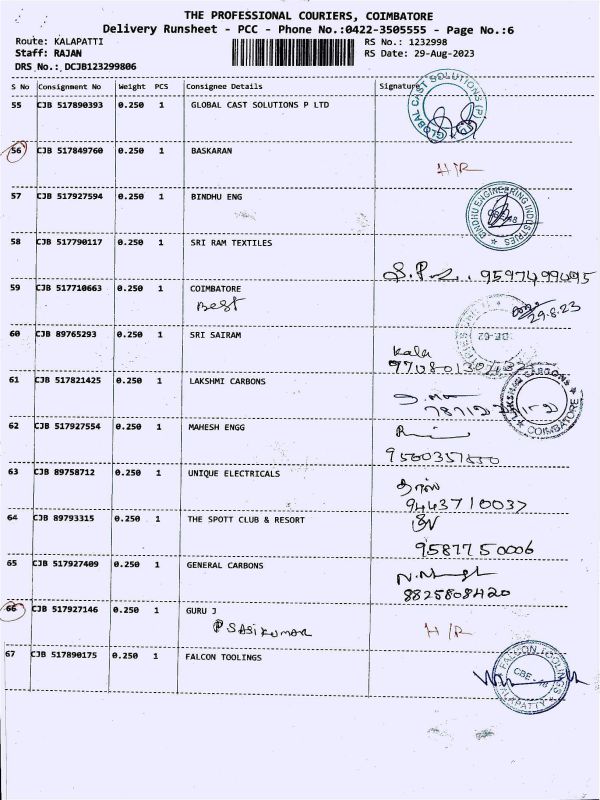 THE PROFESSIONAL COURIERS, COIMBATORE
Delivery Runsheet - PCC - Phone No.:0422-3505555 - Page No.:6
Route: KALAPATTI RS No.: 1232998
Staff: RAJAN RS Date: 29-Aug-2023
DRS No.: DCJB123299806
S No Consignment No Weight PCS Consignee Details Signature
55 CJB 517890393 0.250 1 GLOBAL CAST SOLUTIONS P LTD
GLOBAL CAST SOLUTIONS (P)
56 CJB 517849760 0.250 1 BASKARAN
H/R
57 CJB 517927594 0.250 1 BINDHU ENG
BINDHU ENGINEERING INDUSTRIES
58 CJB 517790117 0.250 1 SRI RAM TEXTILES
59 CJB 517710663 0.250 1 COIMBATORE
Best
29.8.23
60 CJB 89765293 0.250 1 SRI SAIRAM
Kala
61 CJB 517821425 0.250 1 LAKSHMI CARBONS
LAKSHMI CARBONS
COIMBATORE
62 CJB 517927554 0.250 1 MAHESH ENGG
63 CJB 89758712 0.250 1 UNIQUE ELECTRICALS
9443710037
64 CJB 89793315 0.250 1 THE SPOTT CLUB & RESORT
9587750006
65 CJB 517927409 0.250 1 GENERAL CARBONS
8825808420
66 CJB 517927146 0.250 1 GURU J
P SASIKUMAR H/R
67 CJB 517890175 0.250 1 FALCON TOOLINGS
FALCON TOOLINGS
CBE - 48
KALAPATTY